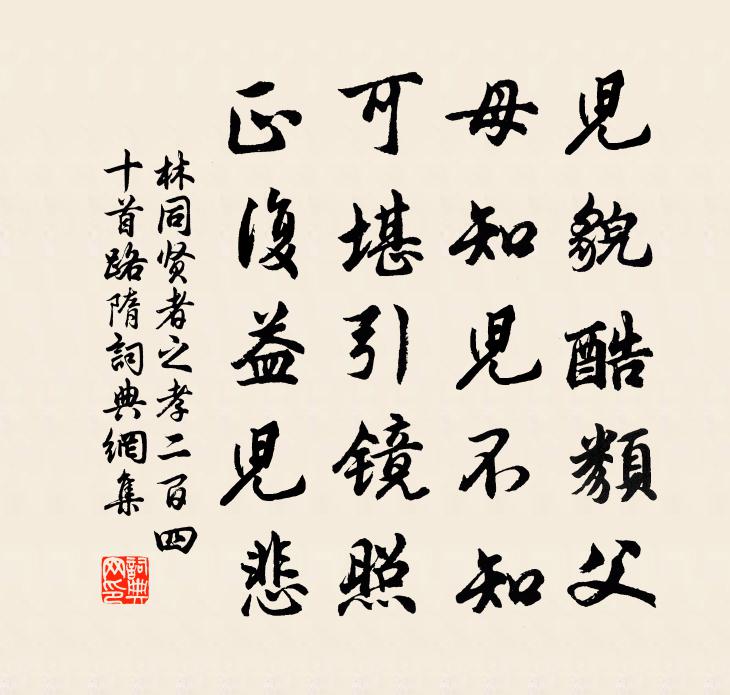 兒貌酷類父
母知兒不知
可堪引镜照
正復益兒悲
林同贤者之孝二百四
十首路隋詞典網集
詞典
网印